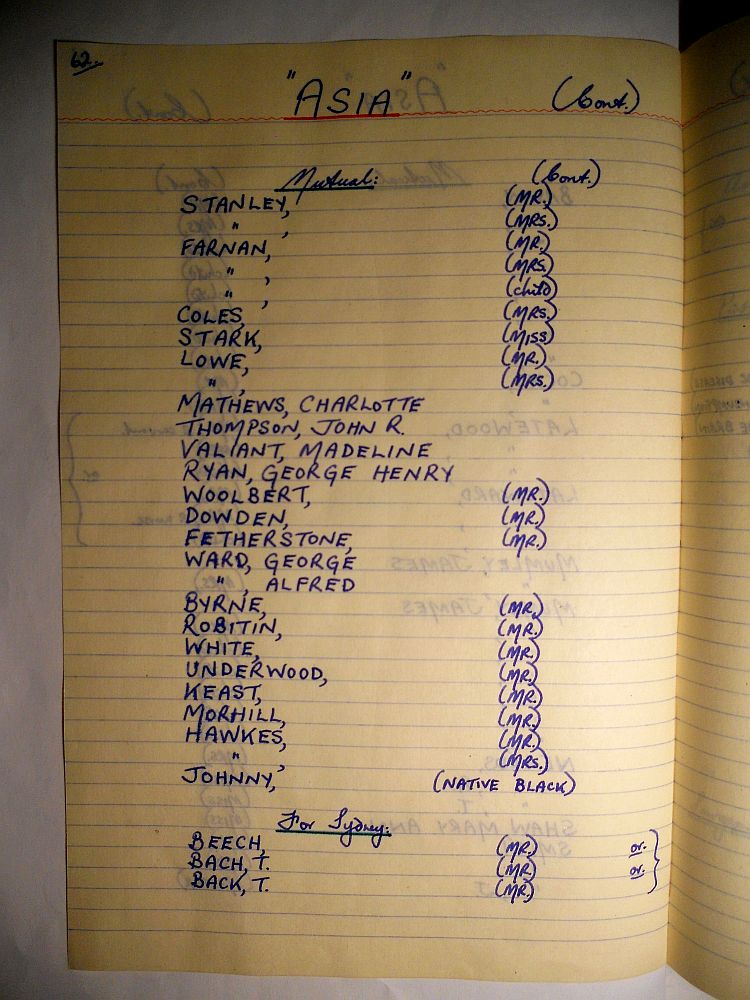 62.
"ASIA" (Cont.)
Mutual: (Cont.)
STANLEY, (MR.)
" , (MRS.)
FARNAN, (MR.)
" , (MRS.)
" , (child)
COLES, (MRS.)
STARK, (MISS)
LOWE, (MR.)
" , (MRS.)
MATHEWS, CHARLOTTE
THOMPSON, JOHN R.
VALIANT, MADELINE
RYAN, GEORGE HENRY
WOOLBERT, (MR.)
DOWDEN, (MR.)
FETHERSTONE, (MR.)
WARD, GEORGE
" , ALFRED
BYRNE, (MR.)
ROBITIN, (MR.)
WHITE, (MR.)
UNDERWOOD, (MR.)
KEAST, (MR.)
MORHILL, (MR.)
HAWKES, (MR.)
" , (MRS.)
JOHNNY, (NATIVE BLACK)
For Sydney:
BEECH, (MR.) or.
BACH, T. (MR.) or.
BACK, T. (MR.)